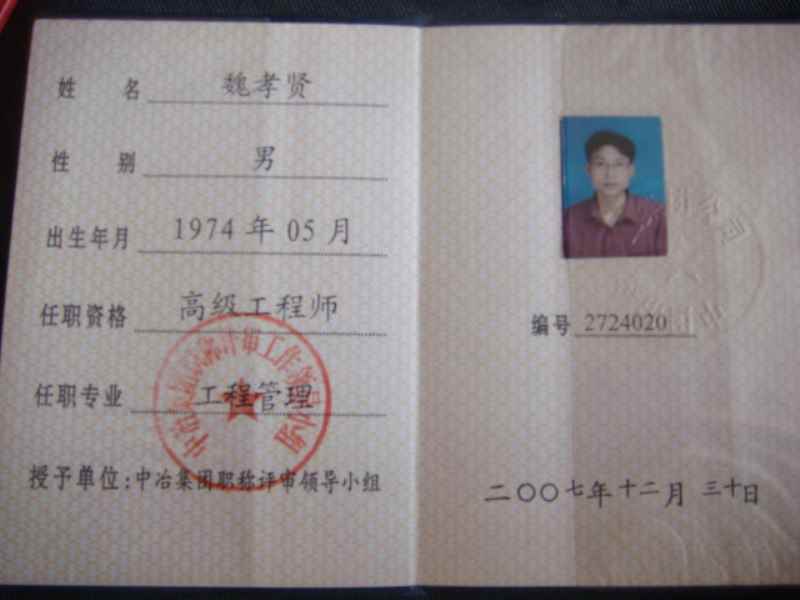 姓 名 魏孝贤
性 别 男
出生年月 1974 年 05 月
任职资格 高级工程师
任职专业 工程管理
授予单位:中冶集团职称评审领导小组
编号 2724020
二〇〇七年十二月 三十日